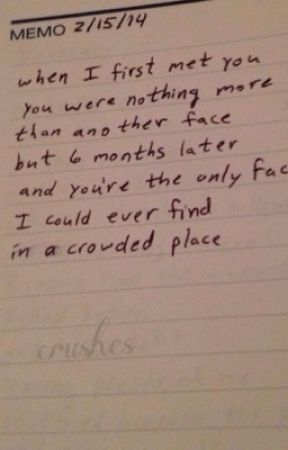 MEMO 2/15/14
when I first met you
you were nothing more
than another face
but 6 months later
and you're the only fac
I could ever find
in a crowded place
crushes